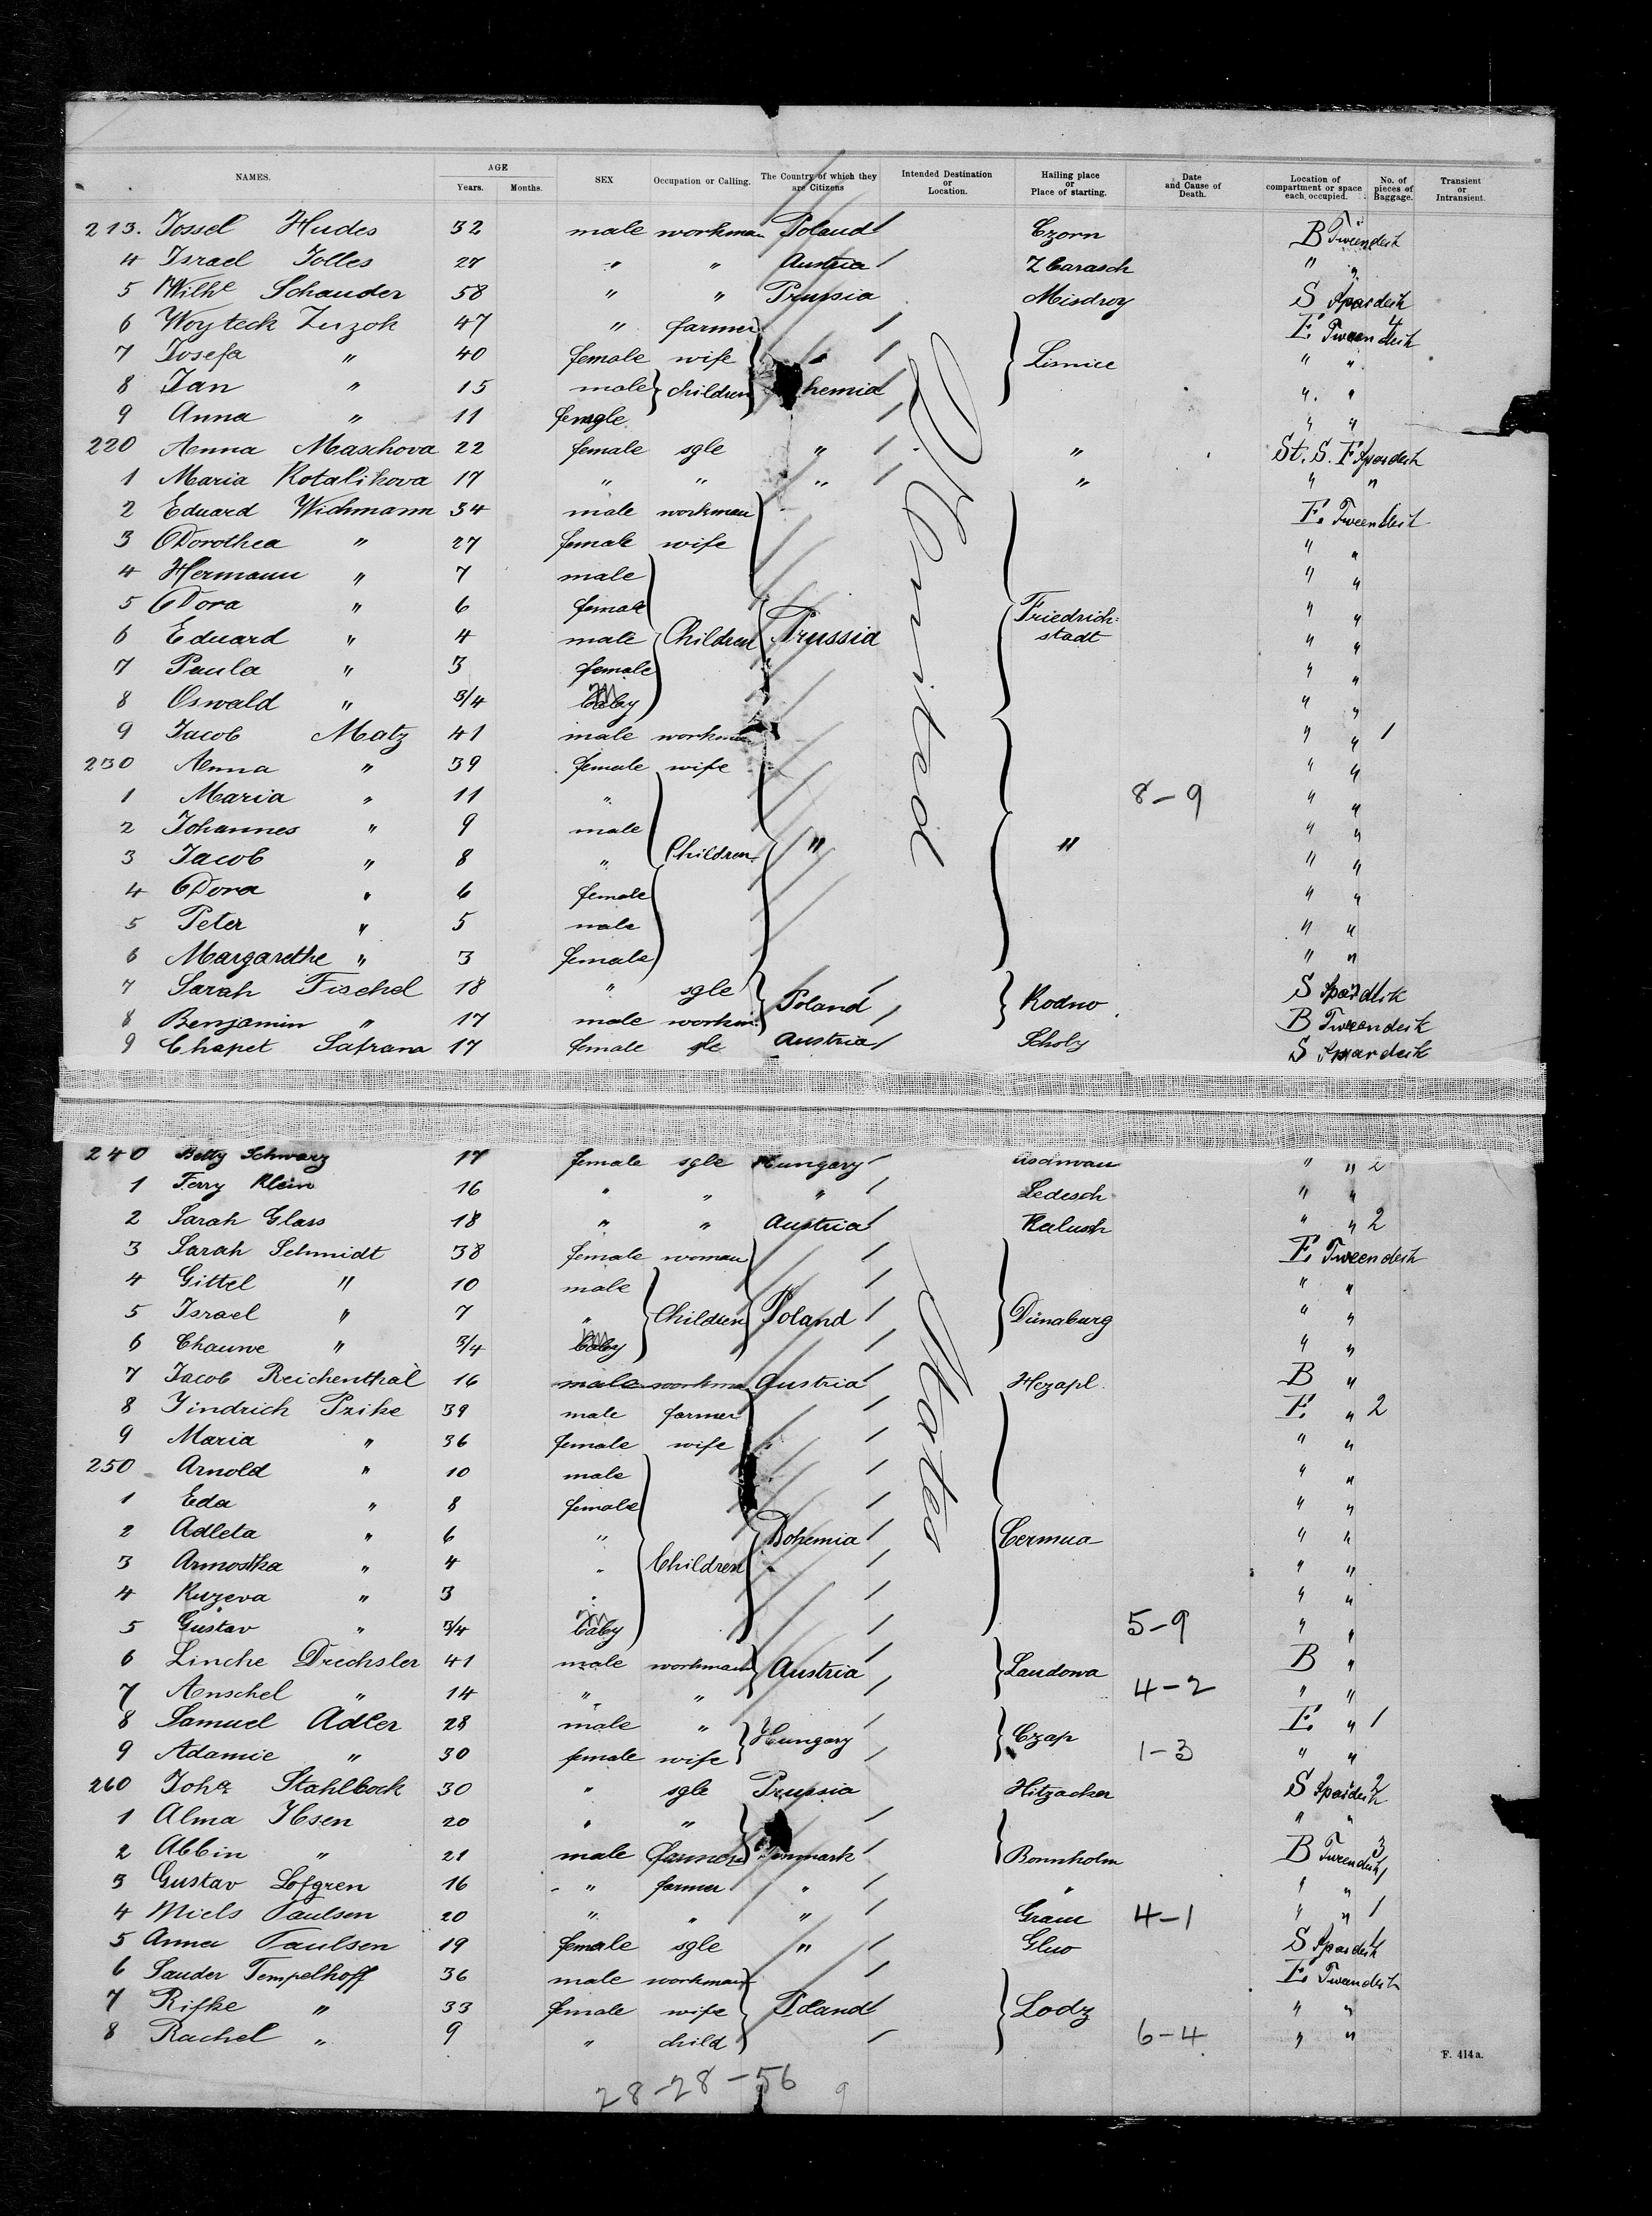 NAMES. AGE Years. Months. SEX Occupation or Calling. The Country of which they are Citizens Intended Destination or Location. Hailing place or Place of starting. Date and Cause of Death. Location of compartment or space each occupied. No. of pieces of Baggage. Transient or Intransient.
213. Jossel Hudes 32 male workman Poland Czorn B Tweendeck
4 Israel Jolles 27 " " Austria Zbarasch " "
5 Wilhe Schauder 58 " " Prussia Misdroy S Spardeck
6 Woyteck Zuzok 47 " farmer E Tweendeck 4
7 Josefa " 40 female wife " Lisnice " "
8 Jan " 15 male children hemia " "
9 Anna " 11 female " "
220 Anna Maschova 22 female sgle " " St. S. F Spardeck
1 Maria Kotalikova 17 " " " " " "
2 Eduard Wichmann 34 male workman E. Tweendeck
3 Dorothea " 27 female wife " "
4 Hermann " 7 male " "
5 Dora " 6 female Friedrich- " "
6 Eduard " 4 male Children Prussia stadt " "
7 Paula " 3 female " "
8 Oswald " 3/4 baby " "
9 Jacob Matz 41 male workman " " 1
230 Anna " 39 female wife " "
1 Maria " 11 " 8-9 " "
2 Johannes " 9 male " "
3 Jacob " 8 " Children " " " "
4 Dora " 6 female " "
5 Peter " 5 male " "
6 Margarethe " 3 female " "
7 Sarah Fischel 18 " sgle Poland Rodno S Spardeck
8 Benjamin " 17 male workm. B Tweendeck
9 Chapet Safrana 17 female sgle Austria Scholy S Spardeck
United States
240 Betty Schwarz 17 female sgle Hungary " " 2
1 Ferry Klein 16 " " " Ledesch " "
2 Sarah Glass 18 " " Austria Kalusch " " 2
3 Sarah Schmidt 38 female woman E Tweendeck
4 Gittel " 10 male " "
5 Israel " 7 " Children Poland Dünaburg " "
6 Chauwe " 3/4 baby " "
7 Jacob Reichenthal 16 male workman Austria Hezapl. B "
8 Jindrich Prike 39 male farmer E " 2
9 Maria " 36 female wife " "
250 Arnold " 10 male " "
1 Eda " 8 female " "
2 Adleta " 6 " Bohemia Cermua " "
3 Arnostka " 4 " Children " "
4 Ruzeva " 3 " " "
5 Gustav " 3/4 baby 5-9 " "
6 Linche Drechsler 41 male workman Austria Landowa B "
7 Aenschel " 14 " " 4-2 " "
8 Samuel Adler 28 male " Hungary Czap E " 1
9 Adamie " 30 female wife 1-3 " "
260 Joha Stahlbock 30 " sgle Prussia Hitzacker S Spardeck 2
1 Alma Ibsen 20 " " " "
2 Abbin " 21 male farmer Denmark Bornholm B Tweendeck 3
3 Gustav Lofgren 16 " farmer " " " "
4 Miels Paulsen 20 " " " Gram 4-1 " " 1
5 Anna Paulsen 19 female sgle " Gluo S Spardeck 1
6 Sauder Tempelhoff 36 male workman E Tweendeck
7 Rifke " 33 female wife Poland Lodz " "
8 Rachel " 9 " child 6-4 " "
F. 414a.
28-28-56 9